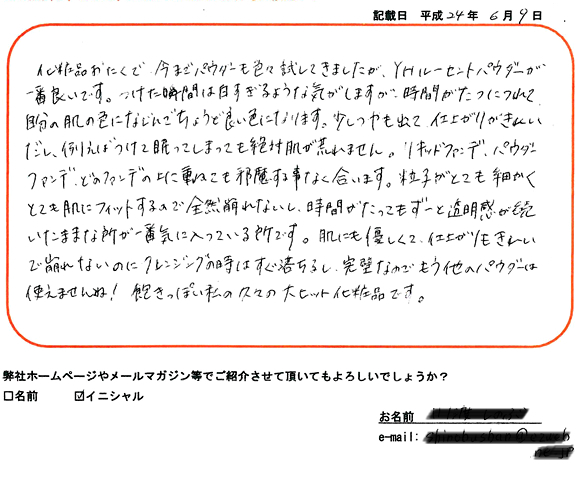 記載日 平成24年 6月9日
化粧品おたくで、今までパウダーも色々試してきましたが、YHルーセントパウダーが
一番良いです。つけた瞬間は白すぎるような気がしますが、時間がたつにつれて
自分の肌の色になじんでちょうど良い色になります。少しつやも出て、仕上がりがきれい
だし、例えばつけて眠ってしまっても絶対肌が荒れません。リキッドファンデ、パウダー
ファンデ、どのファンデの上に重ねても邪魔する事なく合います。粒子がとても細かく
とても肌にフィットするので全然崩れないし、時間がたってもずーと透明感が続
いたままな所が一番気に入っている所です。肌にも優しくて、仕上がりもきれい
で崩れないのにクレンジングの時はすぐ落ちるし、完璧なのでもう他のパウダーは
使えませんね! 飽きっぽい私の久々の大ヒット化粧品です。
弊社ホームページやメールマガジン等でご紹介させて頂いてもよろしいでしょうか?
□名前 ☑イニシャル
お名前
e-mail: